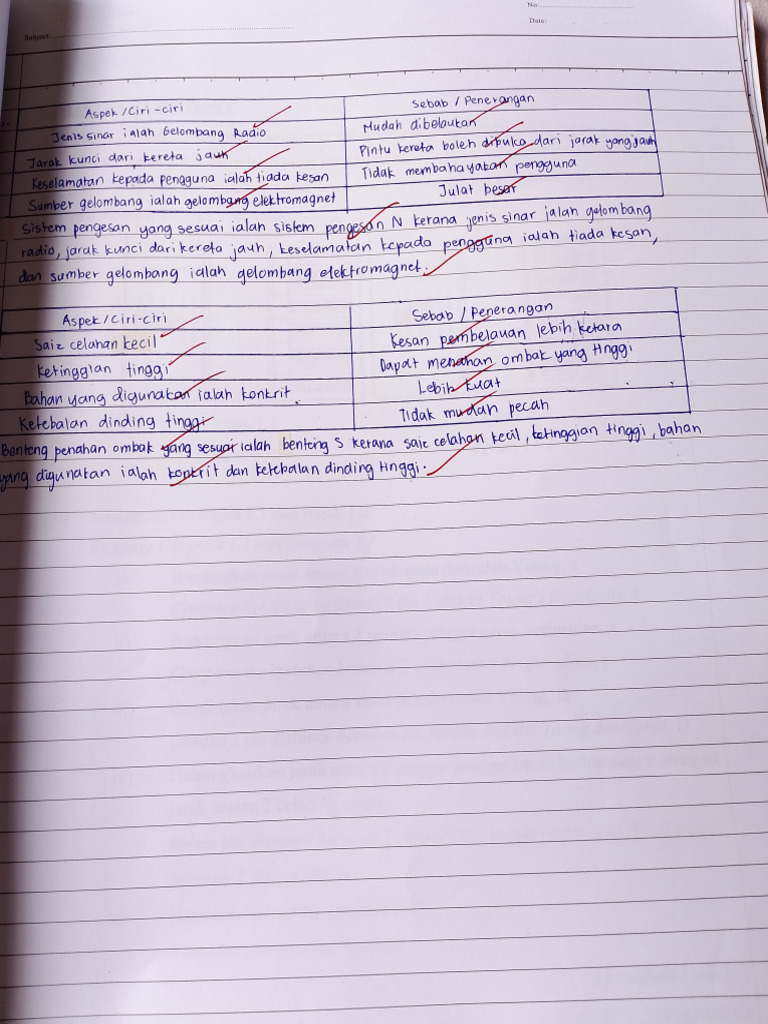 No:
Date:
Subject:
Aspek / Ciri-ciri
Sebab / Penerangan
Jenis sinar ialah Gelombang Radio
Mudah dibelaukan
Jarak kunci dari kereta jauh
Pintu kereta boleh dibuka dari jarak yang jauh
Keselamatan kepada pengguna ialah tiada kesan
Tidak membahayakan pengguna
Sumber gelombang ialah gelombang elektromagnet
Julat besar
Sistem pengesan yang sesuai ialah sistem pengesan N kerana jenis sinar ialah gelombang
radio, jarak kunci dari kereta jauh, keselamatan kepada pengguna ialah tiada kesan,
dan sumber gelombang ialah gelombang elektromagnet.
Aspek / Ciri-ciri
Sebab / Penerangan
Saiz celahan kecil
Kesan pembelauan lebih ketara
Ketinggian tinggi
Dapat menahan ombak yang tinggi
Bahan yang digunakan ialah konkrit.
Lebih kuat
Ketebalan dinding tinggi
Tidak mudah pecah
Benteng penahan ombak yang sesuai ialah benteng S kerana saiz celahan kecil, ketinggian tinggi, bahan
yang digunakan ialah konkrit dan ketebalan dinding tinggi.